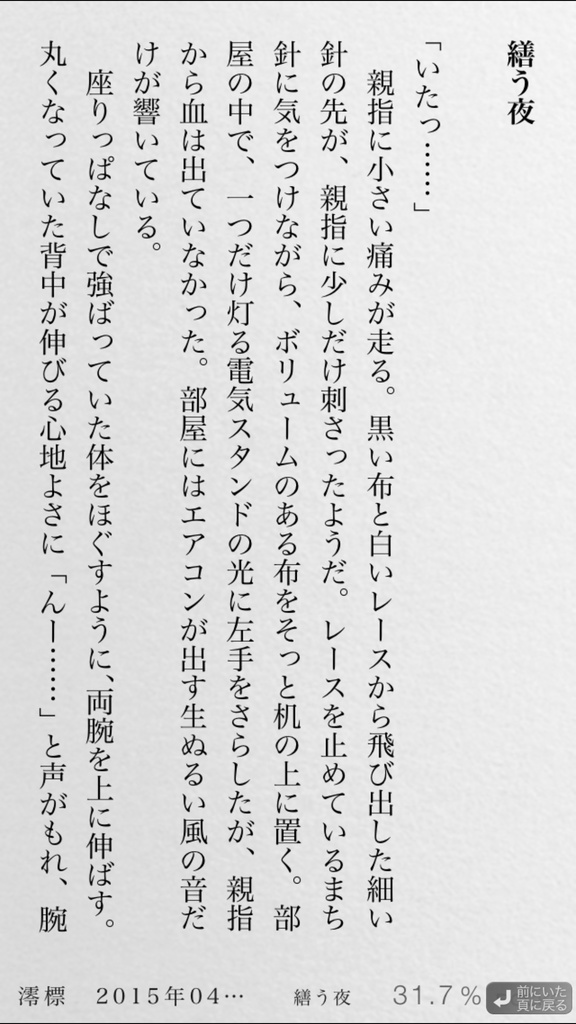 繕う夜
「いたっ……」
　親指に小さい痛みが走る。黒い布と白いレースから飛び出した細い
針の先が、親指に少しだけ刺さったようだ。レースを止めているまち
針に気をつけながら、ボリュームのある布をそっと机の上に置く。部
屋の中で、一つだけ灯る電気スタンドの光に左手をさらしたが、親指
から血は出ていなかった。部屋にはエアコンが出す生ぬるい風の音だ
けが響いている。
　座りっぱなしで強ばっていた体をほぐすように、両腕を上に伸ばす。
丸くなっていた背中が伸びる心地よさに「んー……」と声がもれ、腕
澪標　2015年04…　繕う夜　31.7%
前にいた
頁に戻る